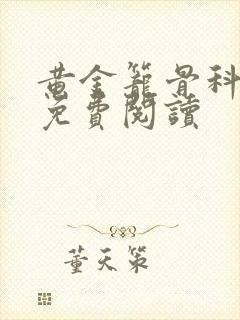 黄金籠骨科
免費閱讀
董天策